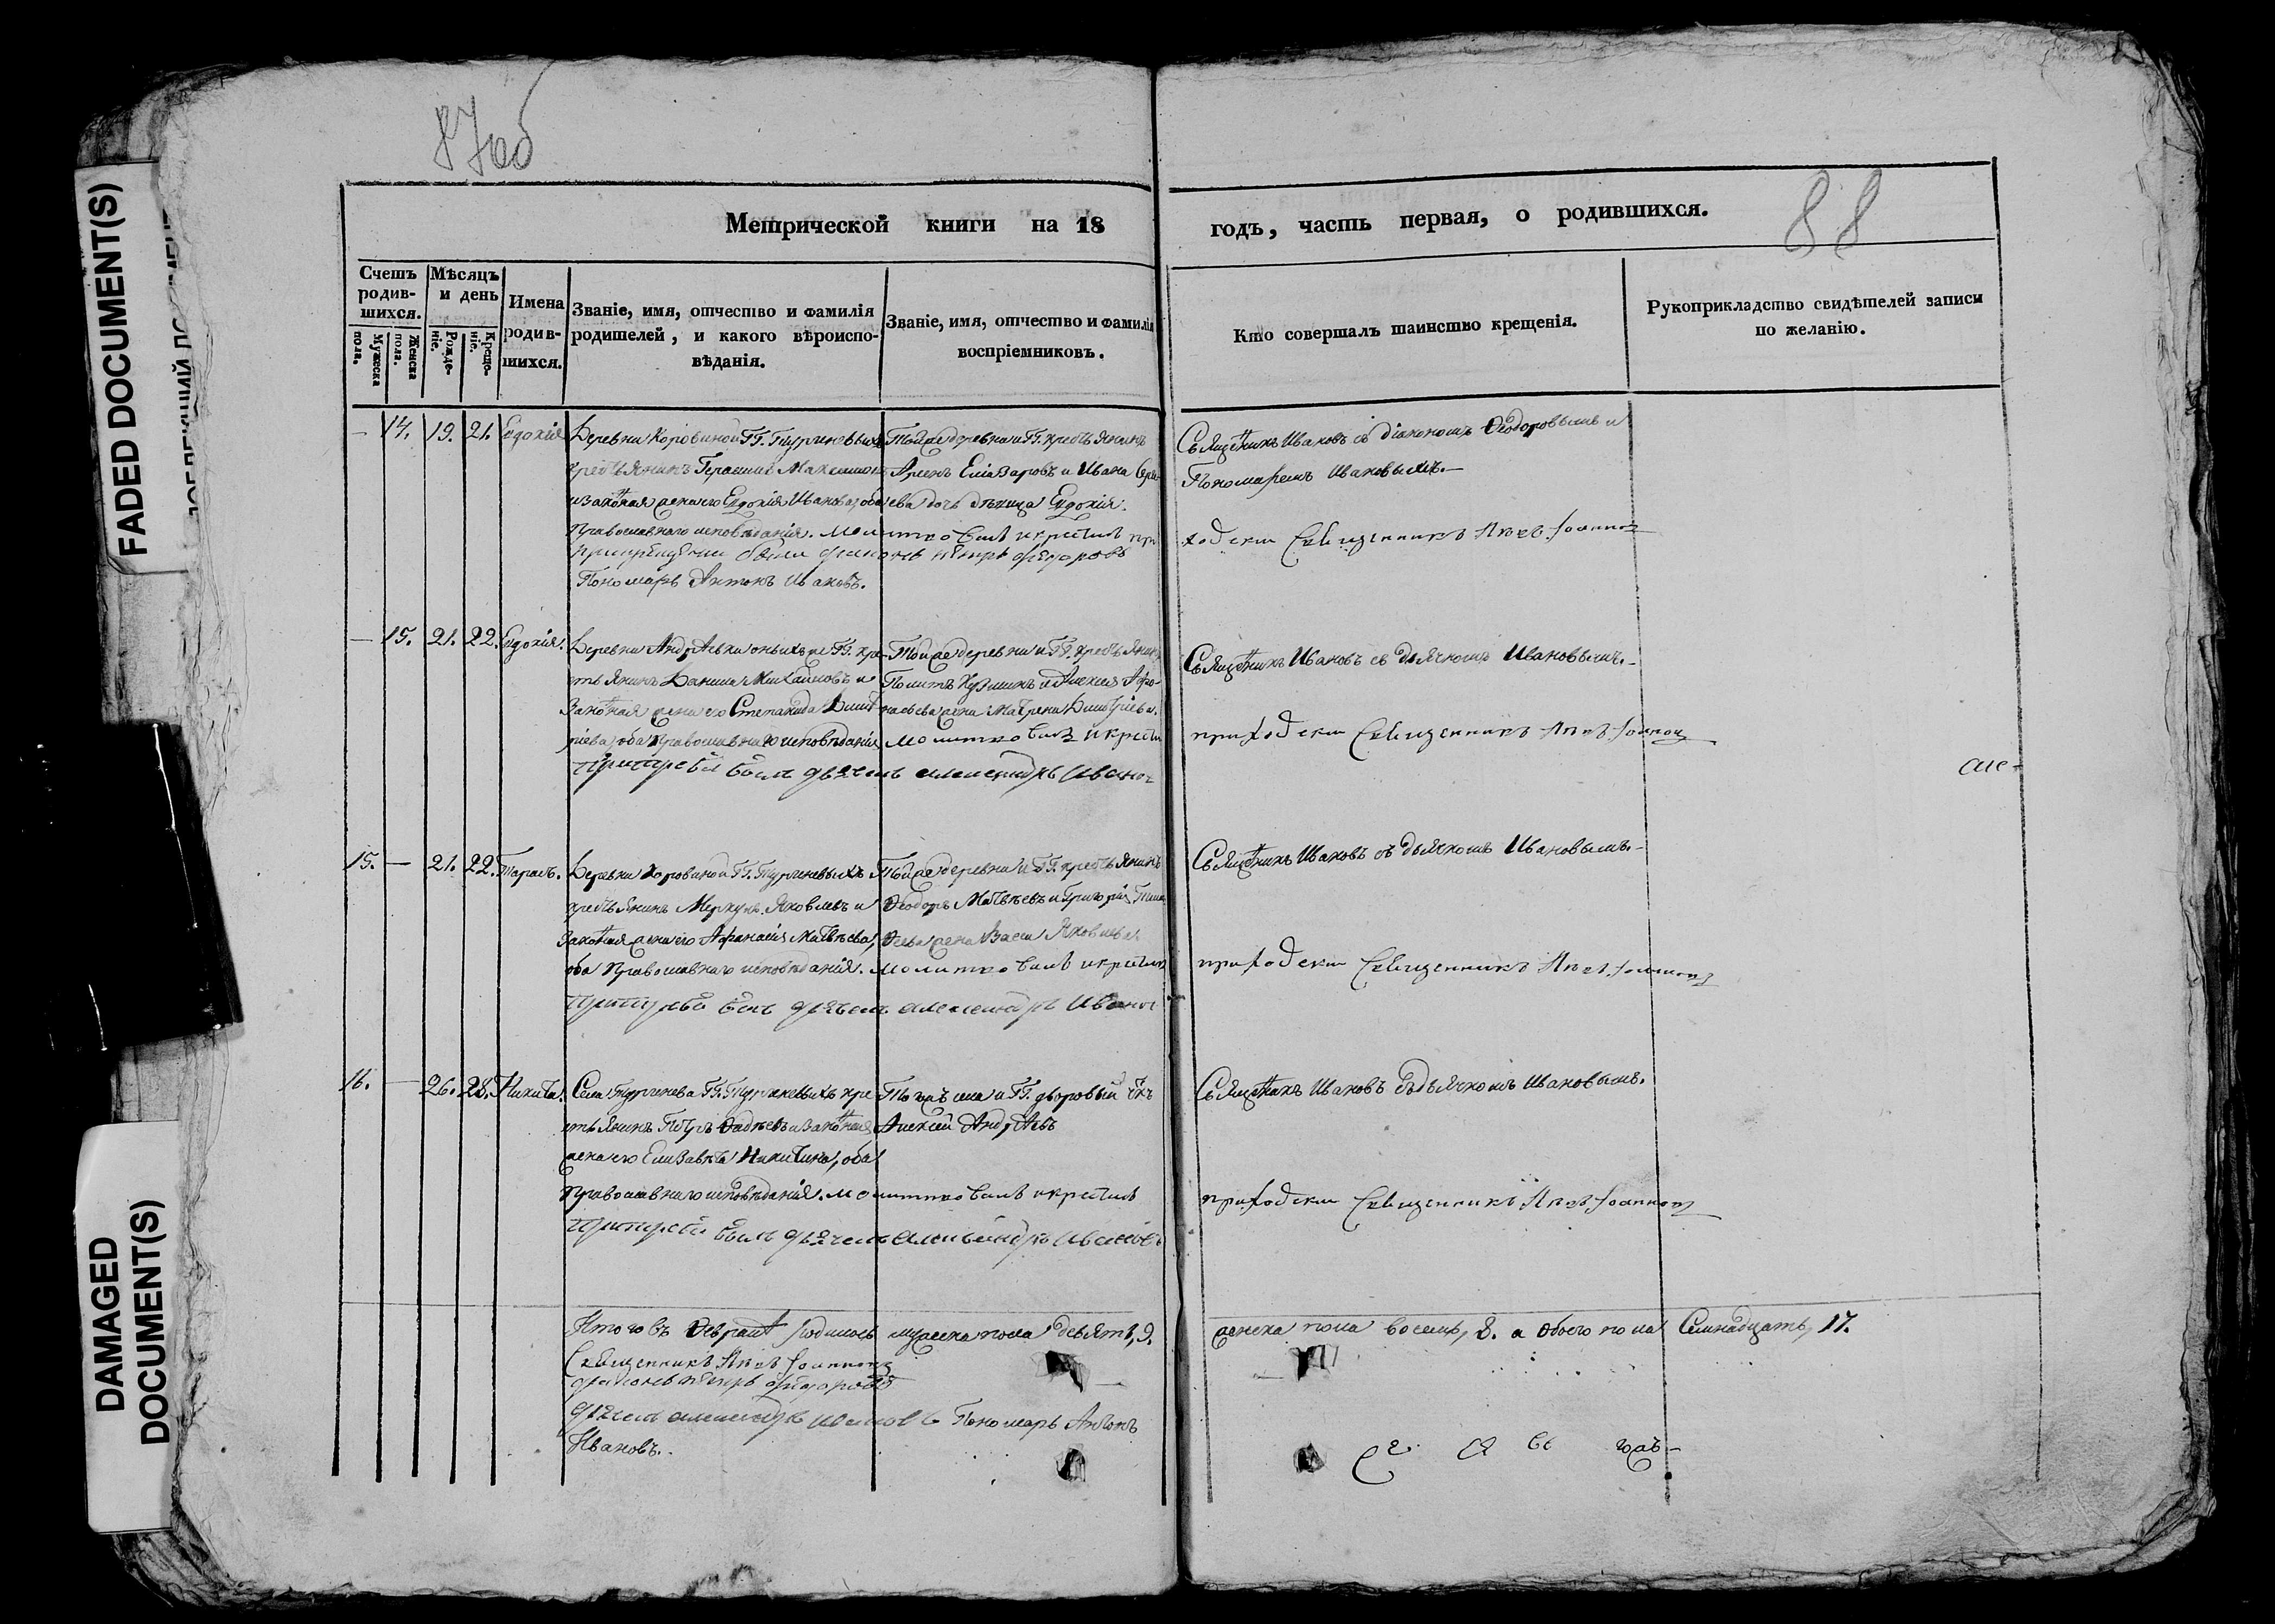 FADED DOCUMENT(S)
DAMAGED
DOCUMENT(S)
87об
88
Метрической книги на 18
годъ, часть первая, о родившихся.
Счетъ родив-шихся.
Мужеска пола.
Женска пола.
Мѣсяцъ и день
Рожде-ніе.
Креще-ніе.
Имена родив-шихся.
Званіе, имя, отчество и фамилія
родителей, и какого вѣроиспо-
вѣданія.
Званіе, имя, отчество и фамилія
воспріемниковъ.
Кто совершалъ таинство крещенія.
Рукоприкладство свидѣтелей записи
по желанію.
— 14. 19. 21. Евдокія
Деревни Коровиной ГГ. Тургеневыхъ
крестьянинъ Герасимъ Максимовъ
и законная жена его Евдокія Иванова, оба
Православнаго исповѣданія. молитвовалъ и крестилъ при
при крещении были диаконъ петръ федоровъ
Пономарь Антонъ Ивановъ.
Той же деревни и ГГ. крестьянинъ
Елиазаровъ и Ивана
дочь дѣвица Евдокія.
Священникъ Ивановъ съ діакономъ Ѳеодоровымъ и
Пономаремъ Ивановымъ.—
ходскии Священникъ Иоанновъ
— 15. 21. 22. Евдокія.
Деревни Андреевки оныхъ же ГГ. кре-
стьянинъ Данила Михайловъ и
Законная жена его Степанида Дмит
ріева, оба Православнаго исповѣданія молитвовалъ и крести
при требѣ былъ дьячекъ александръ Ивановъ
Той же деревни и ГГ. крестьянинъ
Кузминъ и Алексея Афо-
насьева жена Матрена Дмитріева.
Священникъ Ивановъ съ дьячкомъ Ивановымъ.—
приходскии Священникъ Иоанновъ
але-
15. — 21. 22. Тарасъ.
Деревни Коровиной ГГ. Тургеневыхъ
крестьянинъ Меркулъ Яковлевъ и
Законная жена его Афанасія Матвѣева,
оба Православнаго исповѣданія. молитвовалъ и крестилъ
при требѣ былъ дьячекъ александръ Ивановъ
Той же деревни и ГГ. крестьянинъ
Ѳеодоръ Матвѣевъ и Григорія
жена Яковлева.
Священникъ Ивановъ съ дьячкомъ Ивановымъ.—
приходскии Священникъ Иоанновъ
16. — 26. 28. Никита.
Села Тургенева ГГ. Тургеневыхъ кре
стьянинъ Петръ Фадѣевъ и законная
жена его Елизавета Никитина, оба
Православнаго исповѣданія. молитвовалъ и крестилъ
при требѣ былъ дьячекъ александръ Ивановъ
Того жъ села и ГГ. дворовый чкъ
Алексей Андреевъ
Священникъ Ивановъ съ дьячкомъ Ивановымъ.
приходскии Священникъ Иоанновъ
Итого въ Февралѣ родилось мужеска пола девять, 9.
женска пола восемь, 8. а обоего пола Семнадцать, 17.
Священникъ Иоанновъ
диаконъ петръ федоровъ
дьячекъ александръ ивановъ Пономарь Антонъ
Ивановъ.